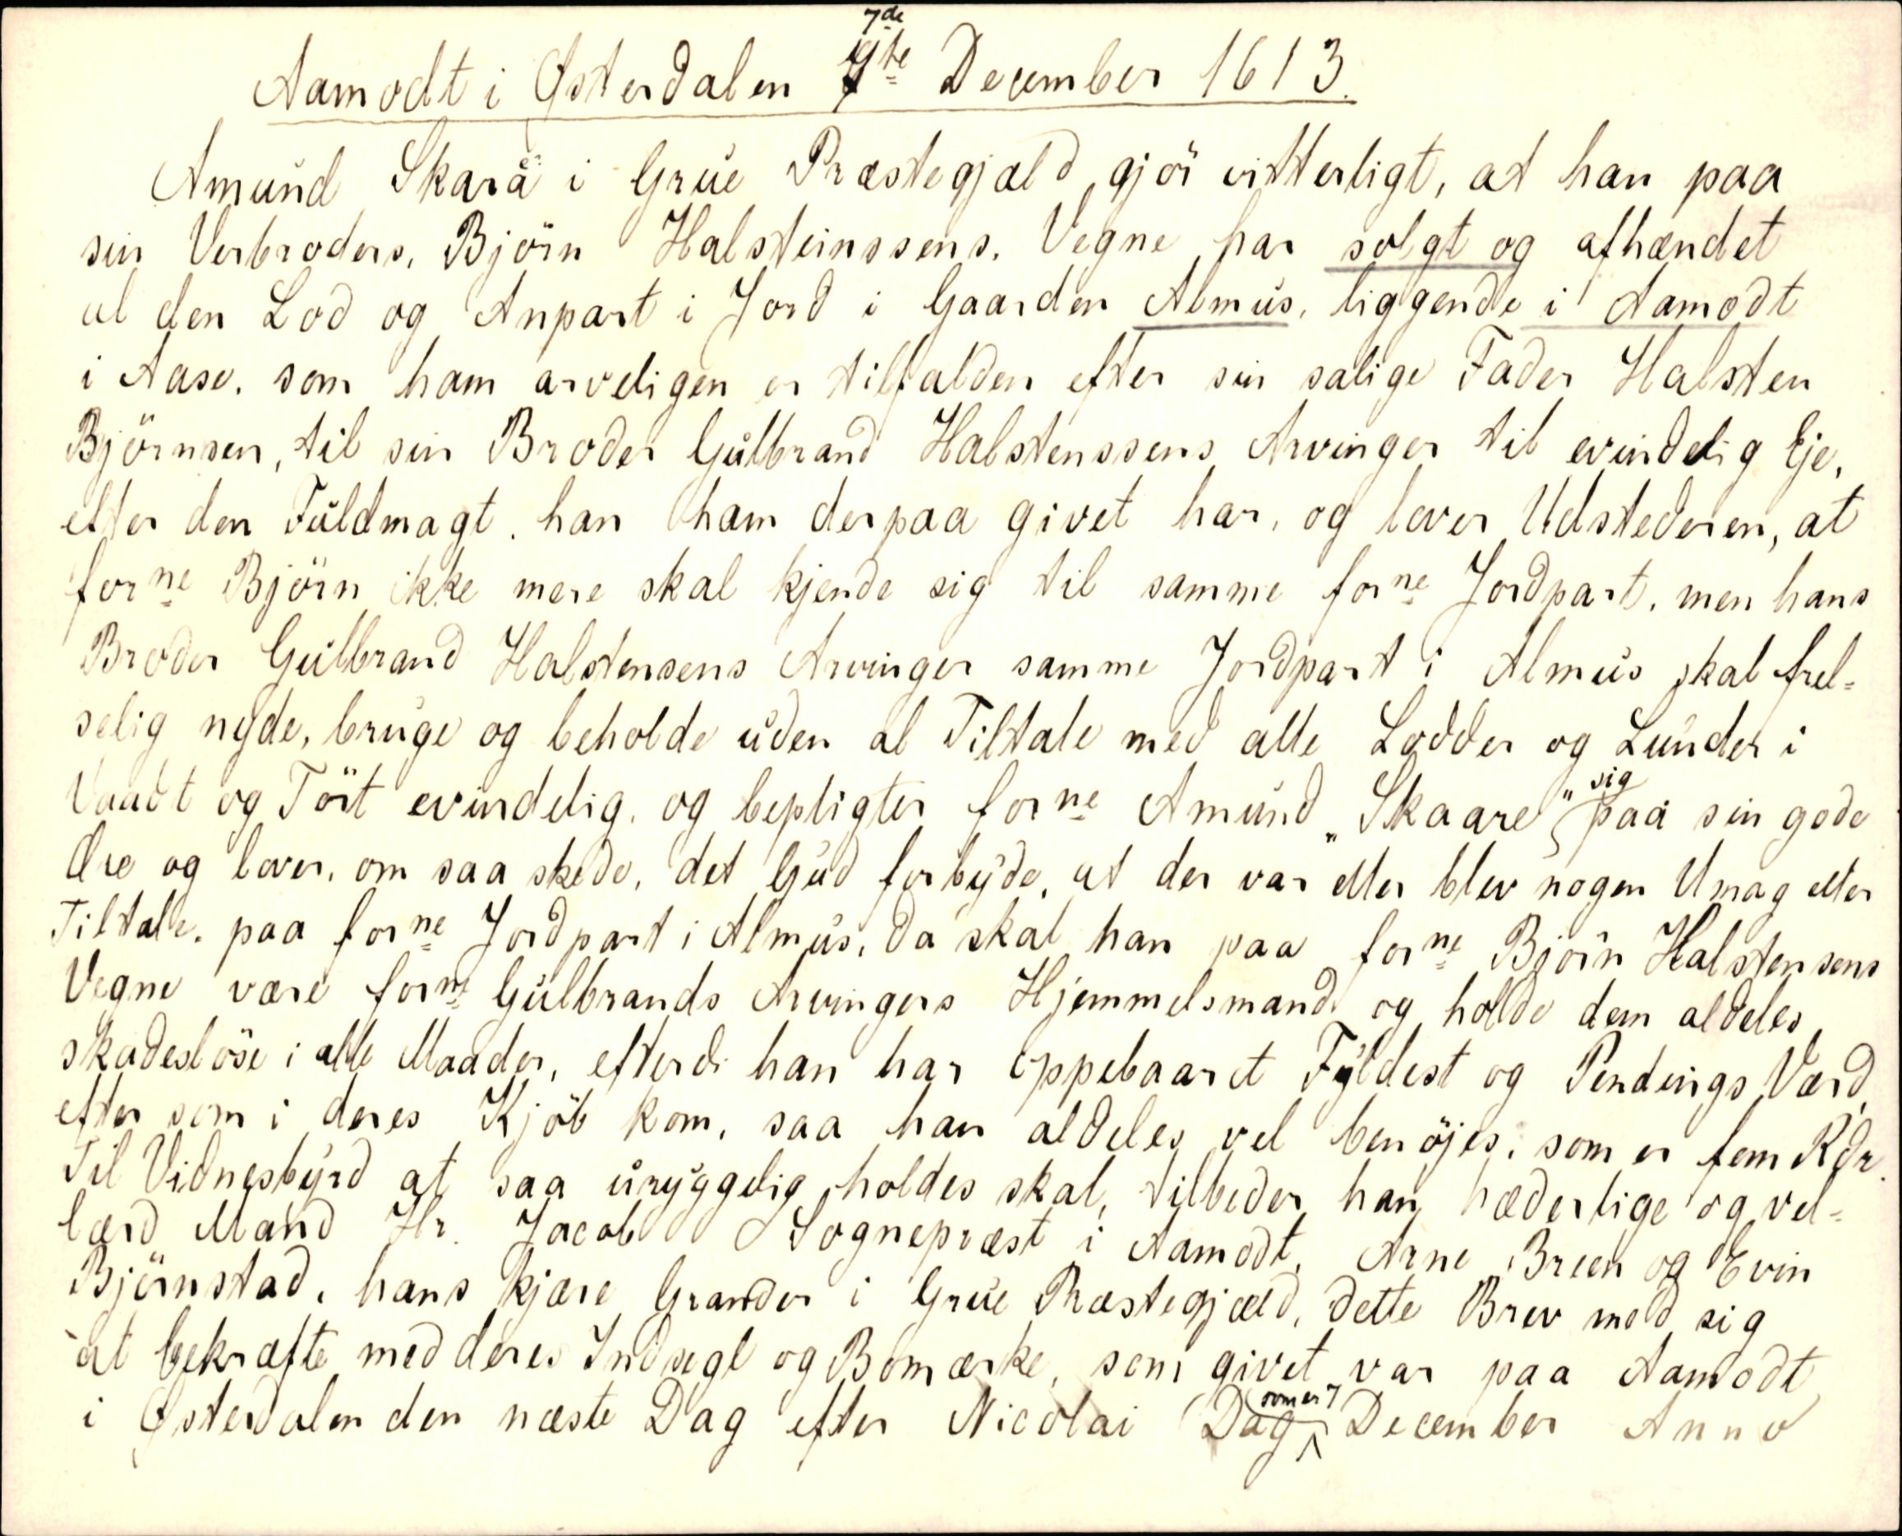 Aamodt i Østerdalen 7de December 1613.
Amund Skarå i Grue Præstegjæld gjör vitterligt, at han paa
sin Verbroders, Björn Halsteinssens, Vegne har solgt og afhændet
al den Lod og Anpart i Jord i Gaarden Almus, liggende i Aamodt
i Aase, som ham arveligen er tilfalden efter sin salige Fader Halsten
Björnsen, til sin Broder Gulbrand Halstenssens Arvinger til evindelig Eje,
efter den Fuldmagt, han ham derpaa givet har, og lover Udstederen, at
forne Björn ikke mere skal kjende sig til samme forne Jordpart, men hans
Broder Gulbrand Halstensens Arvinger samme Jordpart i Almus skal frel-
selig nyde, bruge og beholde uden al Tiltale med alle Lodder og Lunder i
Vaadt og Tört evindelig, og bepligter forne Amund „Skaare” sig paa sin gode
Ære og lover, om saa skede, det Gud forbyde, at der var eller blev nogen Umag eller
Tiltale, paa forne Jordpart i Almus, da skal han paa forne Björn Halstensens
Vegne være forne Gulbrands Arvingers Hjemmelsmand og holde dem aldeles
skadeslöse i alle Maader, efterdi han har oppebaaret Fyldest og Pendings Værd,
efter som i deres Kjöb kom, saa han aldeles vel benöjes, som er fem Rdr.
Til Vidnesbyrd at saa uryggelig holdes skal, tilbeder han hæderlige og vel-
lærd Mand Hr. Jacob Sognepræst i Aamodt, Arne Breen og Evin
Björnstad, hans kjære Grander i Grue Præstegjæld, dette Brev med sig
at bekræfte med deres Indsegl og Bomærke, som givet var paa Aamodt
i Østerdalen den næste Dag efter Nicolai Dag som er 7 December Anno